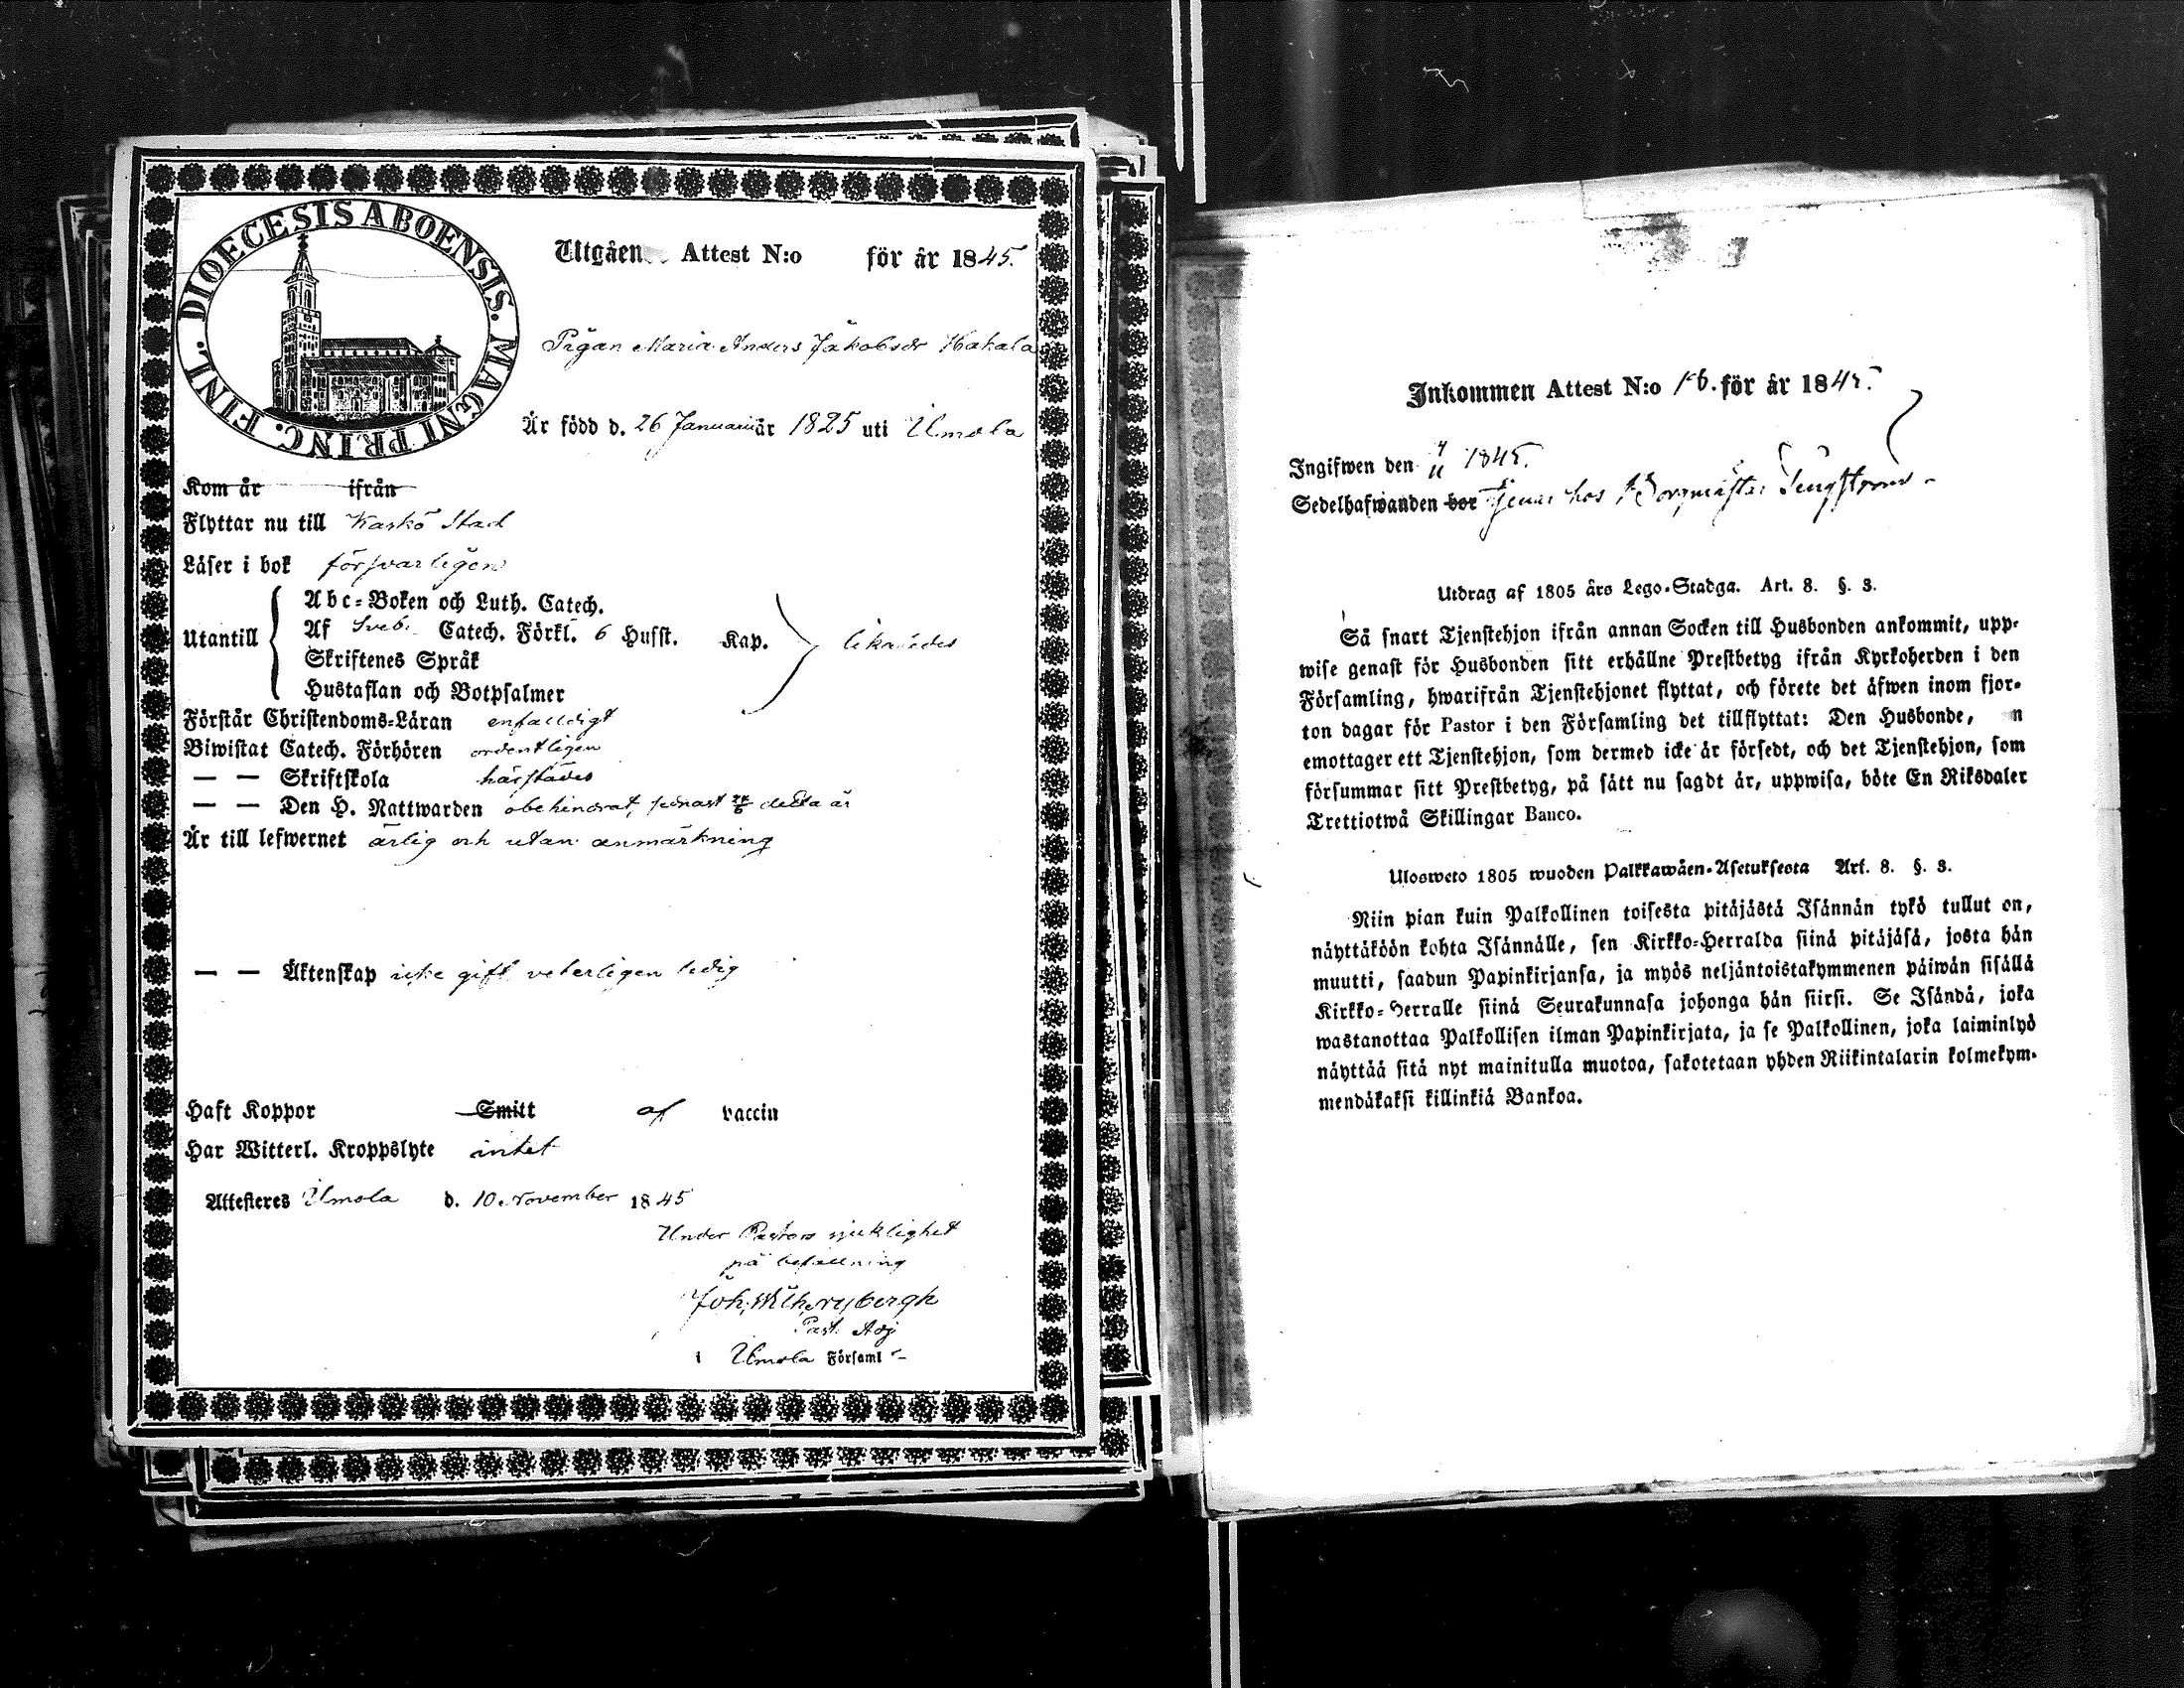 DIOECESIS ABOENSIS. MAGNI PRINC. FINL.
Utgåen Attest N:o för år 1845.
Pigan Maria Anders Jakobsdr Hakala
Är född d. 26 Januarii år 1825 uti Ilmola
Kom år ifrån
Flyttar nu till Kaskö Stad
Läser i bok försvarligen
Utantill
Abc-Boken och Luth. Catech.
Af Sveb. Catech. Förkl. 6 Husst. Kap.
Skriftenes Språk
Hustaflan och Botpsalmer
likaledes
Förstår Christendoms-Läran enfaldigt
Biwistat Catech. Förhören ordentligen
— — Skriftskola härstädes
— — Den H. Nattwarden obehindrat, senast detta år
Är till lefwernet ärlig och utan anmärkning
— — Äktenskap icke gift veterligen ledig
Haft Koppor Smitt af vaccin
Har Witterl. Kroppslyte intet
Attesteres Ilmola d. 10 November 1845
Under Pastors sjuklighet
på befallning
Joh.
Past. Adj
i Ilmola Församl
Inkommen Attest N:o för år 1845.
Ingifwen den 1845.
Sedelhafwanden bor tjenar hos
Utdrag af 1805 års Lego-Stadga. Art. 8. §. 3.
Så snart Tjenstehjon ifrån annan Socken till Husbonden ankommit, upp-
wise genast för Husbonden sitt erhållne Prestbetyg ifrån Kyrkoherden i den
Församling, hwarifrån Tjenstehjonet flyttat, och förete det äfwen inom fjor-
ton dagar för Pastor i den Församling det tillflyttat: Den Husbonde, n
emottager ett Tjenstehjon, som dermed icke är försedt, och det Tjenstehjon, som
försummar sitt Prestbetyg, på sätt nu sagdt är, uppwisa, böte En Riksdaler
Trettiotwå Skillingar Banco.
Ulosweto 1805 wuoden Palkkawäen-Asetuksesta Art. 8. §. 3.
Niin pian kuin Palkollinen toisesta pitäjästä Isännän tykö tullut on,
näyttäköön kohta Isännälle, sen Kirkko-Herralda siinä pitäjäsä, josta hän
muutti, saadun Papinkirjansa, ja myös neljäntoistakymmenen päiwän sisällä
Kirkko-Herralle siinä Seurakunnasa johonga hän siirsi. Se Isändä, joka
wastanottaa Palkollisen ilman Papinkirjata, ja se Palkollinen, joka laiminlyö
näyttää sitä nyt mainitulla muotoa, sakotetaan yhden Riikintalarin kolmekym-
mendäkaksi killinkiä Bankoa.